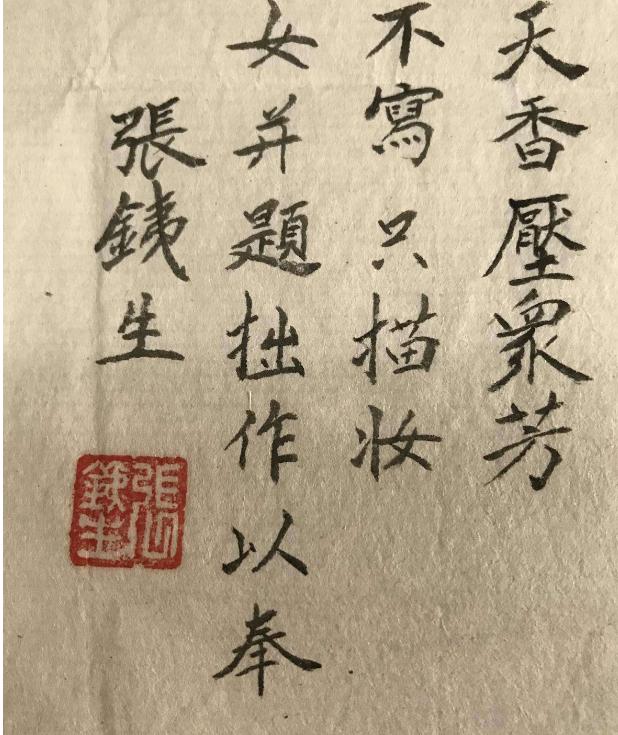 天香壓衆芳
不寫只描妆
女并題拙作以奉
張銕生
張
銕生